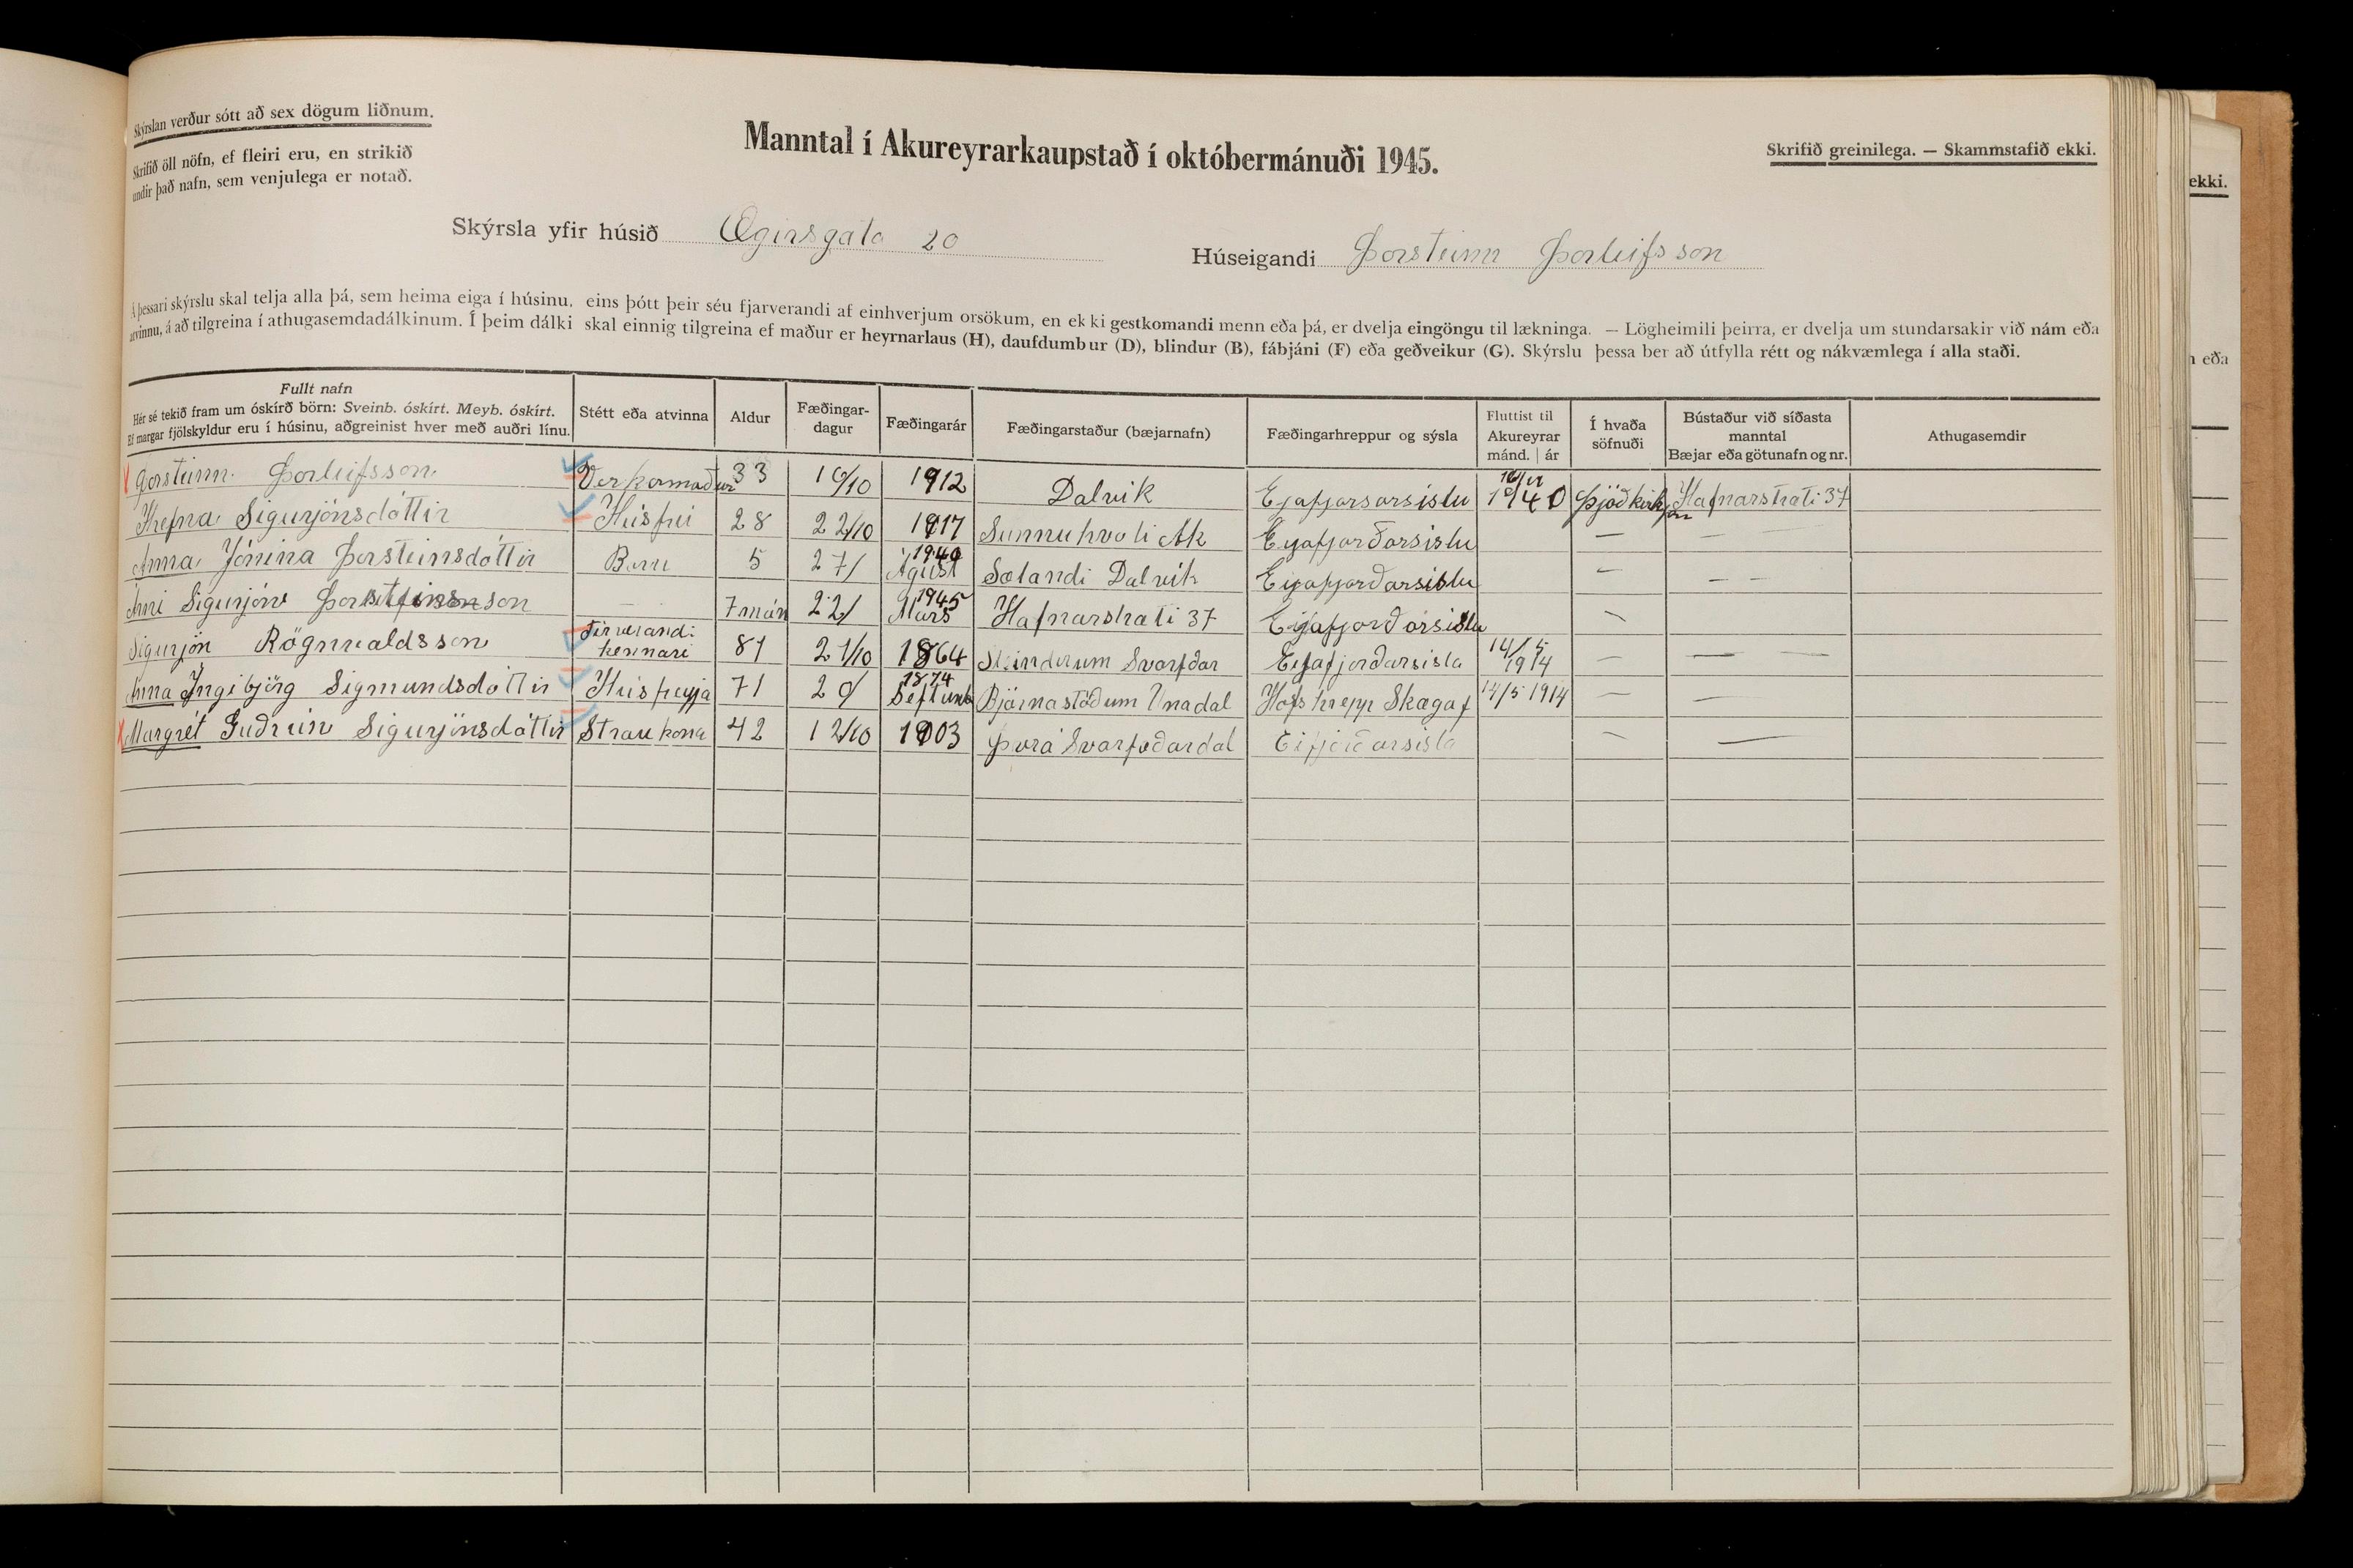 Skýrslan verður sótt að sex dögum liðnum.
Skrifið öll nöfn, ef fleiri eru, en strikið
undir það nafn, sem venjulega er notað.
Manntal í Akureyrarkaupstað í októbermánuði 1945.
Skrifið greinilega. — Skammstafið ekki.
ekki.
Skýrsla yfir húsið Ægirsgata 20
Húseigandi Þorsteinn Þorleifsson
Á þessari skýrslu skal telja alla þá, sem heima eiga í húsinu, eins þótt þeir séu fjarverandi af einhverjum orsökum, en ekki gestkomandi menn eða þá, er dvelja eingöngu til lækninga. — Lögheimili þeirra, er dvelja um stundarsakir við nám eða
atvinnu, á að tilgreina í athugasemdadálkinum. Í þeim dálki skal einnig tilgreina ef maður er heyrnarlaus (H), daufdumbur (D), blindur (B), fábjáni (F) eða geðveikur (G). Skýrslu þessa ber að útfylla rétt og nákvæmlega í alla staði.
eða
Fullt nafn
Hér sé tekið fram um óskírð börn: Sveinb. óskírt. Meyb. óskírt.
Ef margar fjölskyldur eru í húsinu, aðgreinist hver með auðri línu.
Stétt eða atvinna
Aldur
Fæðingar-
dagur
Fæðingarár
Fæðingarstaður (bæjarnafn)
Fæðingarhreppur og sýsla
Fluttist til
Akureyrar
mánd. | ár
Í hvaða
söfnuði
Bústaður við síðasta
manntal
Bæjar eða götunafn og nr.
Athugasemdir
Þorsteinn Þorleifsson Verkamaður 33 10/10 1912 Dalvik Ejafjarsarsislu 1940 Þjóðkirkjan Hafnarstrati 37
Hrefna Sigurjónsdóttir Húsfrú 28 22/10 1917 Sunnuhvoli Ak Eyafjarðarsislu — —
Anna Jónina Þorsteinsdóttir Barn 5 27/ Ágúst 1940 Sælandi Dalvik Eyjafjarðarsislu — — —
Árni Sigurjón Þorsteinsson 7 mán 22/ Mars 1945 Hafnarstrati 37 Eyjafjarðarsislu —
Sigurjón Rögnvaldsson Firverandi kennari 81 21/10 1864 Steindirum Svarfdar Eyjafjorðarsisla 14/5 1914 — — —
Anna Ingibjörg Sigmundsdóttir Húsfreyja 71 20/ Septemb 1874 Bjarnastöðum Unadal Hofs hrepp Skagaf 14/5 1914 — —
Margrét Guðrún Sigurjónsdóttir Straukona 42 12/10 1903 Þverá Svarfaðardal — —